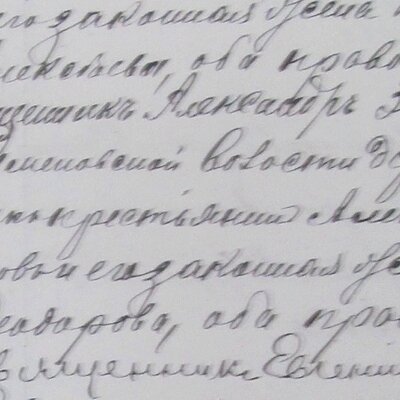 его законная жена
Алексѣева, оба право
щенникъ Александръ
еменовской волости д
крестьянин Але
овъ и его законная же
еодорова, оба пра
священникъ Евгені